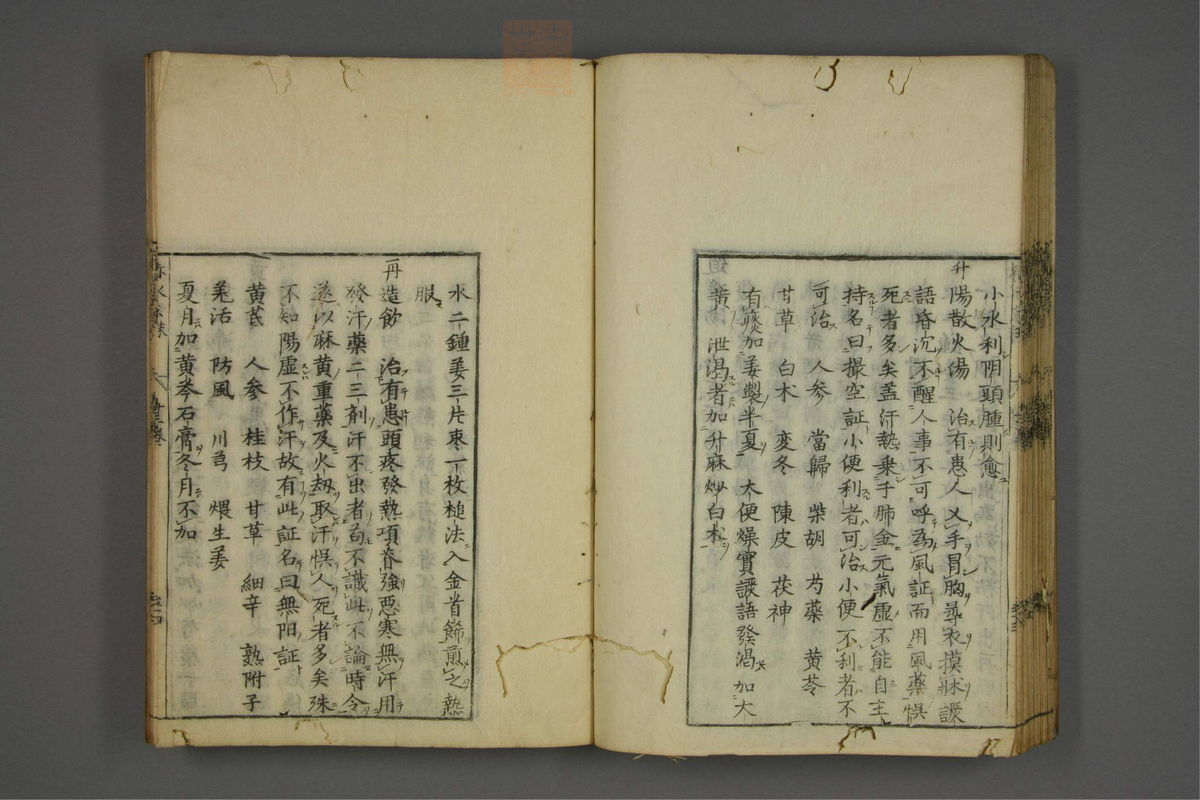 小水利阴頭腫則愈
升陽散火湯　治有患人乂手冒胸尋衣摸牀譫
語昏沉不醒人事不可呼為風証而用風藥悞
死者多矣盖汗熱乗于肺金元氣虚不能自主
持名曰撮空証小便利者可治小便不利者不
可治　人参　當歸　柴胡　芍藥　黄芩
甘草　白术　麦冬　陳皮　茯神
有痰加姜製半夏　大便燥實譫語發渇加大
黄　泄渇者加升麻炒白术
水二鍾姜三片枣一枚槌法入金首餙煎之熱
服
一再造飲　治有患頭疼發熱項脊強惡寒無汗用
發汗藥二三剤汗不出者為不識此不論時令
遂以麻黄重藥及火刼取汗悞人死者多矣殊
不知陽虚不作汗故有此証名曰無阳証
黄芪　人参　桂枝　甘草　細辛　熟附子
羌活　防風　川芎　煨生姜
夏月加黄芩石膏冬月不加